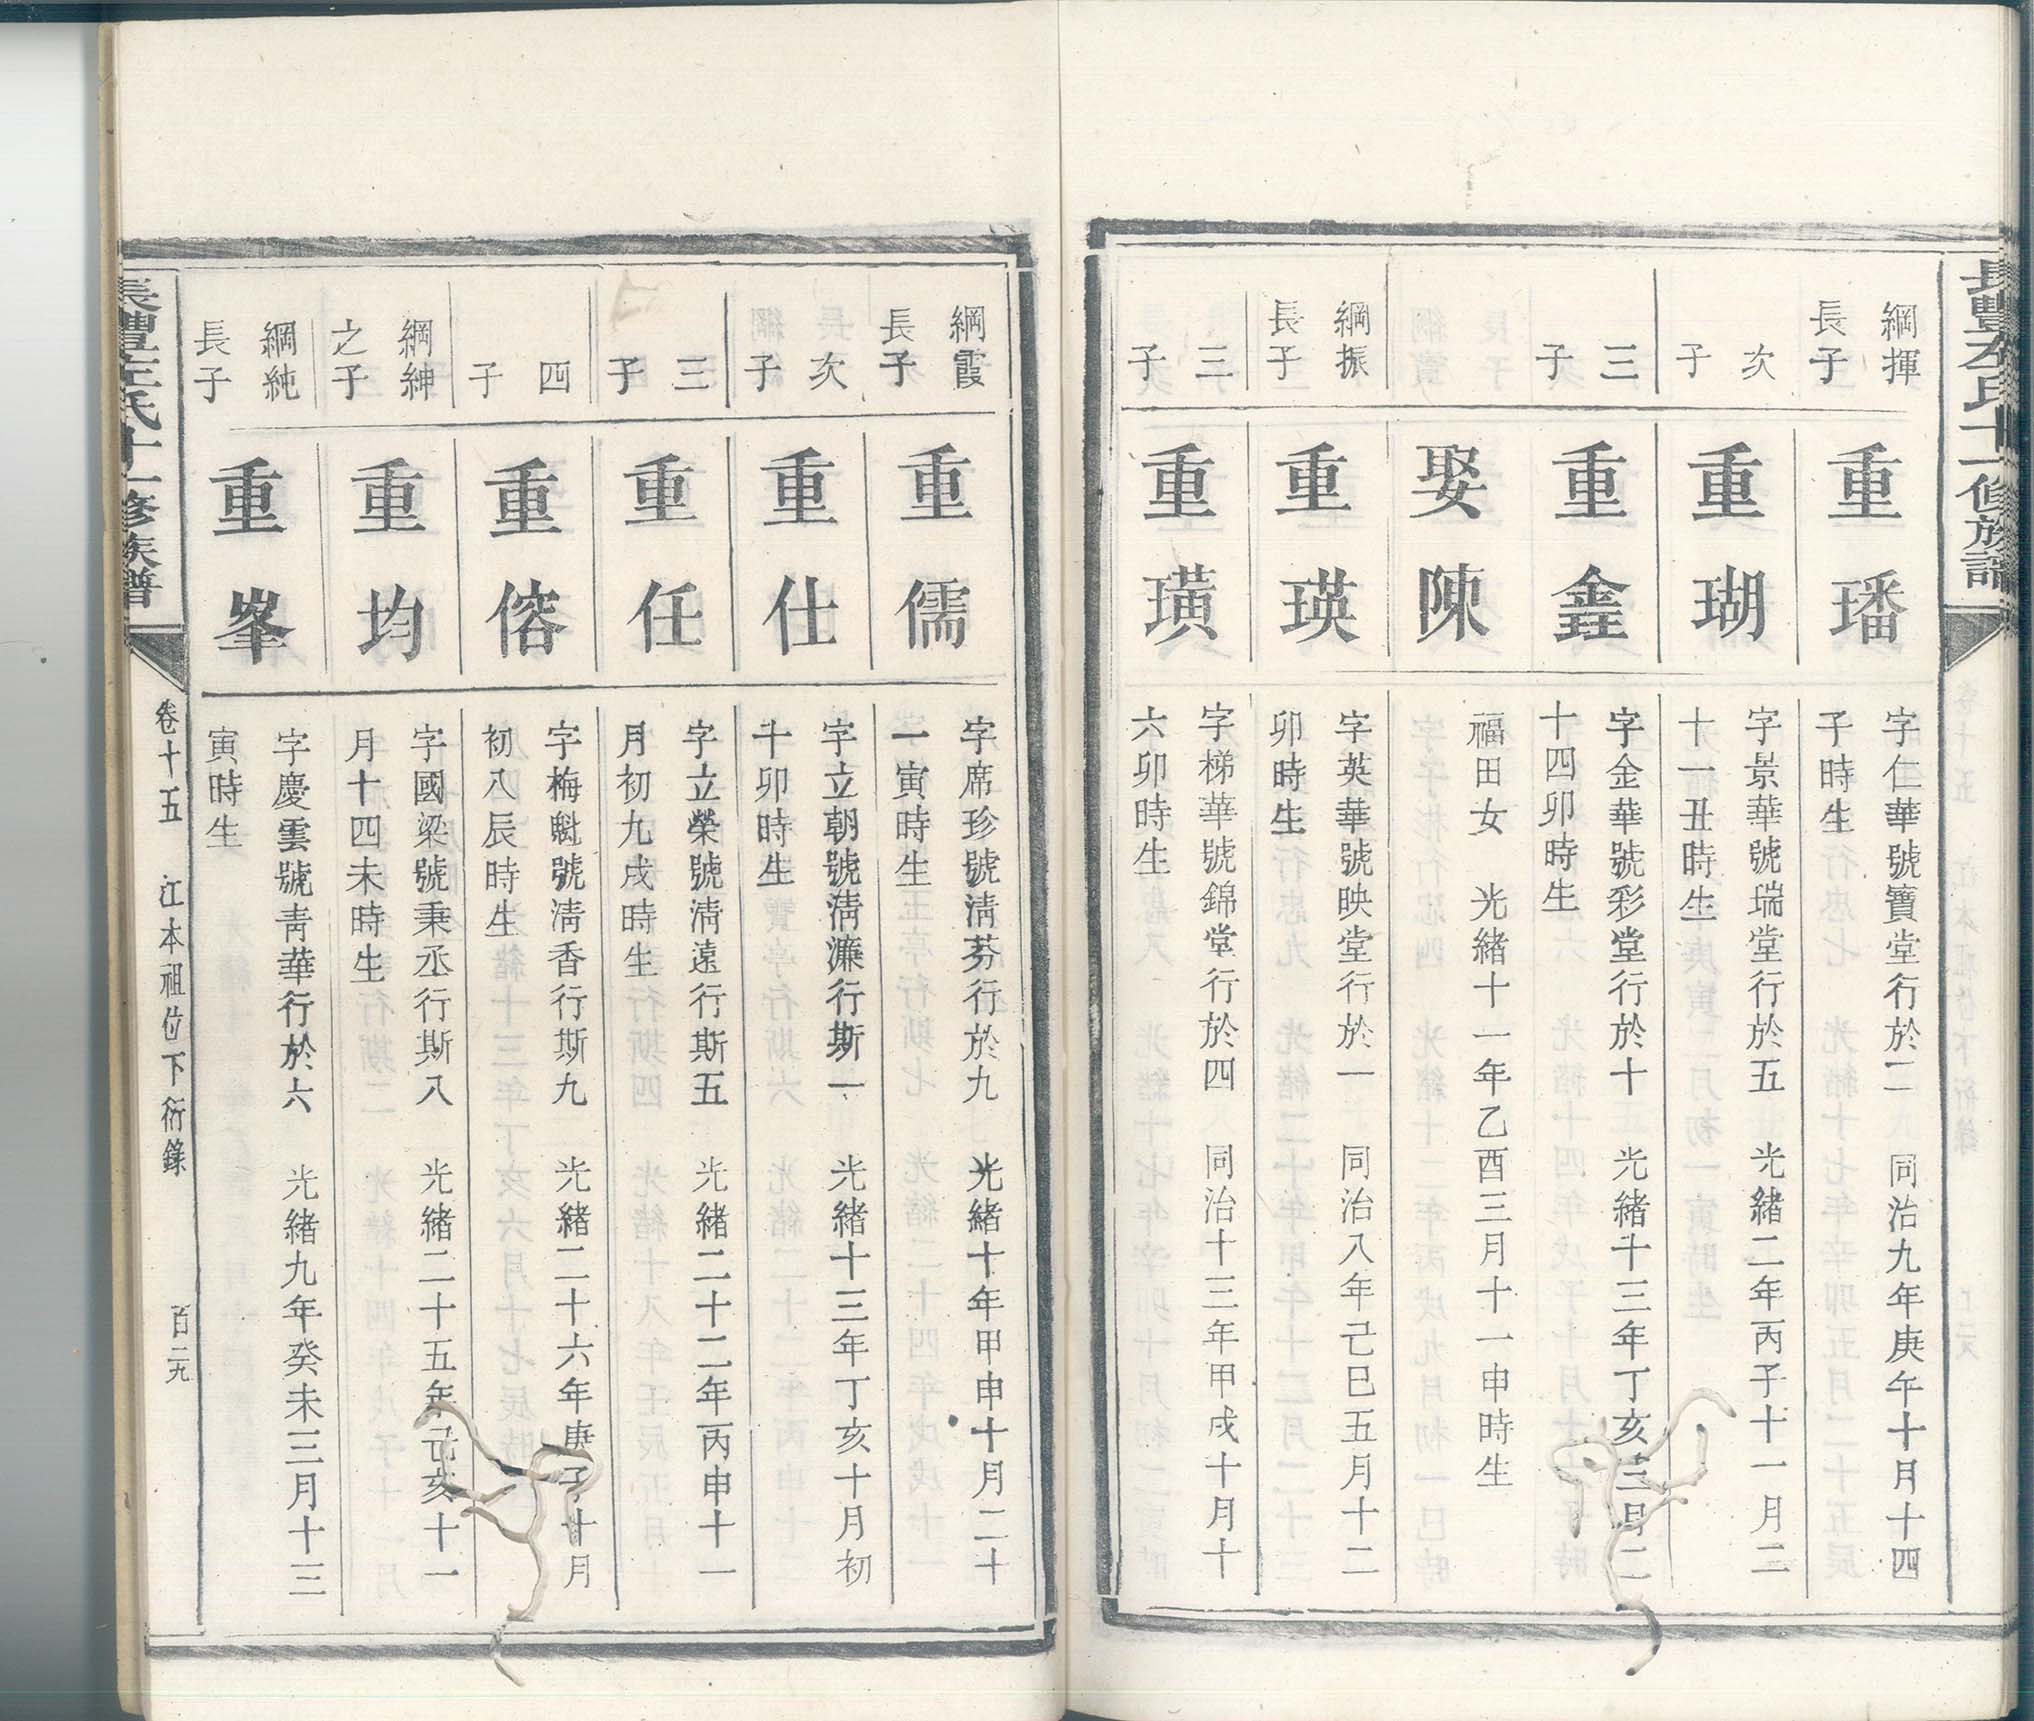 長豐左氏十一修族譜
綱揮
長子
重璠
字仁華號寶堂行於二 同治九年庚午十月十四
子時生
次
子
重瑚
字景華號瑞堂行於五 光緒二年丙子十一月二
十一丑時生
三
子
重鑫
字金華號彩堂行於十 光緒十三年丁亥三月二
十四卯時生
娶陳
福田女 光緒十一年乙酉三月十一申時生
綱振
長子
重瑛
字英華號映堂行於一 同治八年己巳五月十二
卯時生
三
子
重璜
字梯華號錦堂行於四 同治十三年甲戌十月十
六卯時生
綱霞
長子
重儒
字席珍號清芬行於九 光緒十年甲申十月二十
一寅時生
次
子
重仕
字立朝號清濂行斯一 光緒十三年丁亥十月初
十卯時生
三
子
重任
字立榮號清遠行斯五 光緒二十二年丙申十一
月初九戌時生
四
子
重傛
字梅魁號清香行斯九 光緒二十六年庚子十月
初八辰時生
綱紳
之子
重均
字國梁號秉丞行斯八 光緒二十五年己亥十一
月十四未時生
綱純
長子
重峯
字慶雲號青華行於六 光緒九年癸未三月十三
寅時生
長豐左氏十一修族譜
卷十五 江本祖位下衍錄 百二九